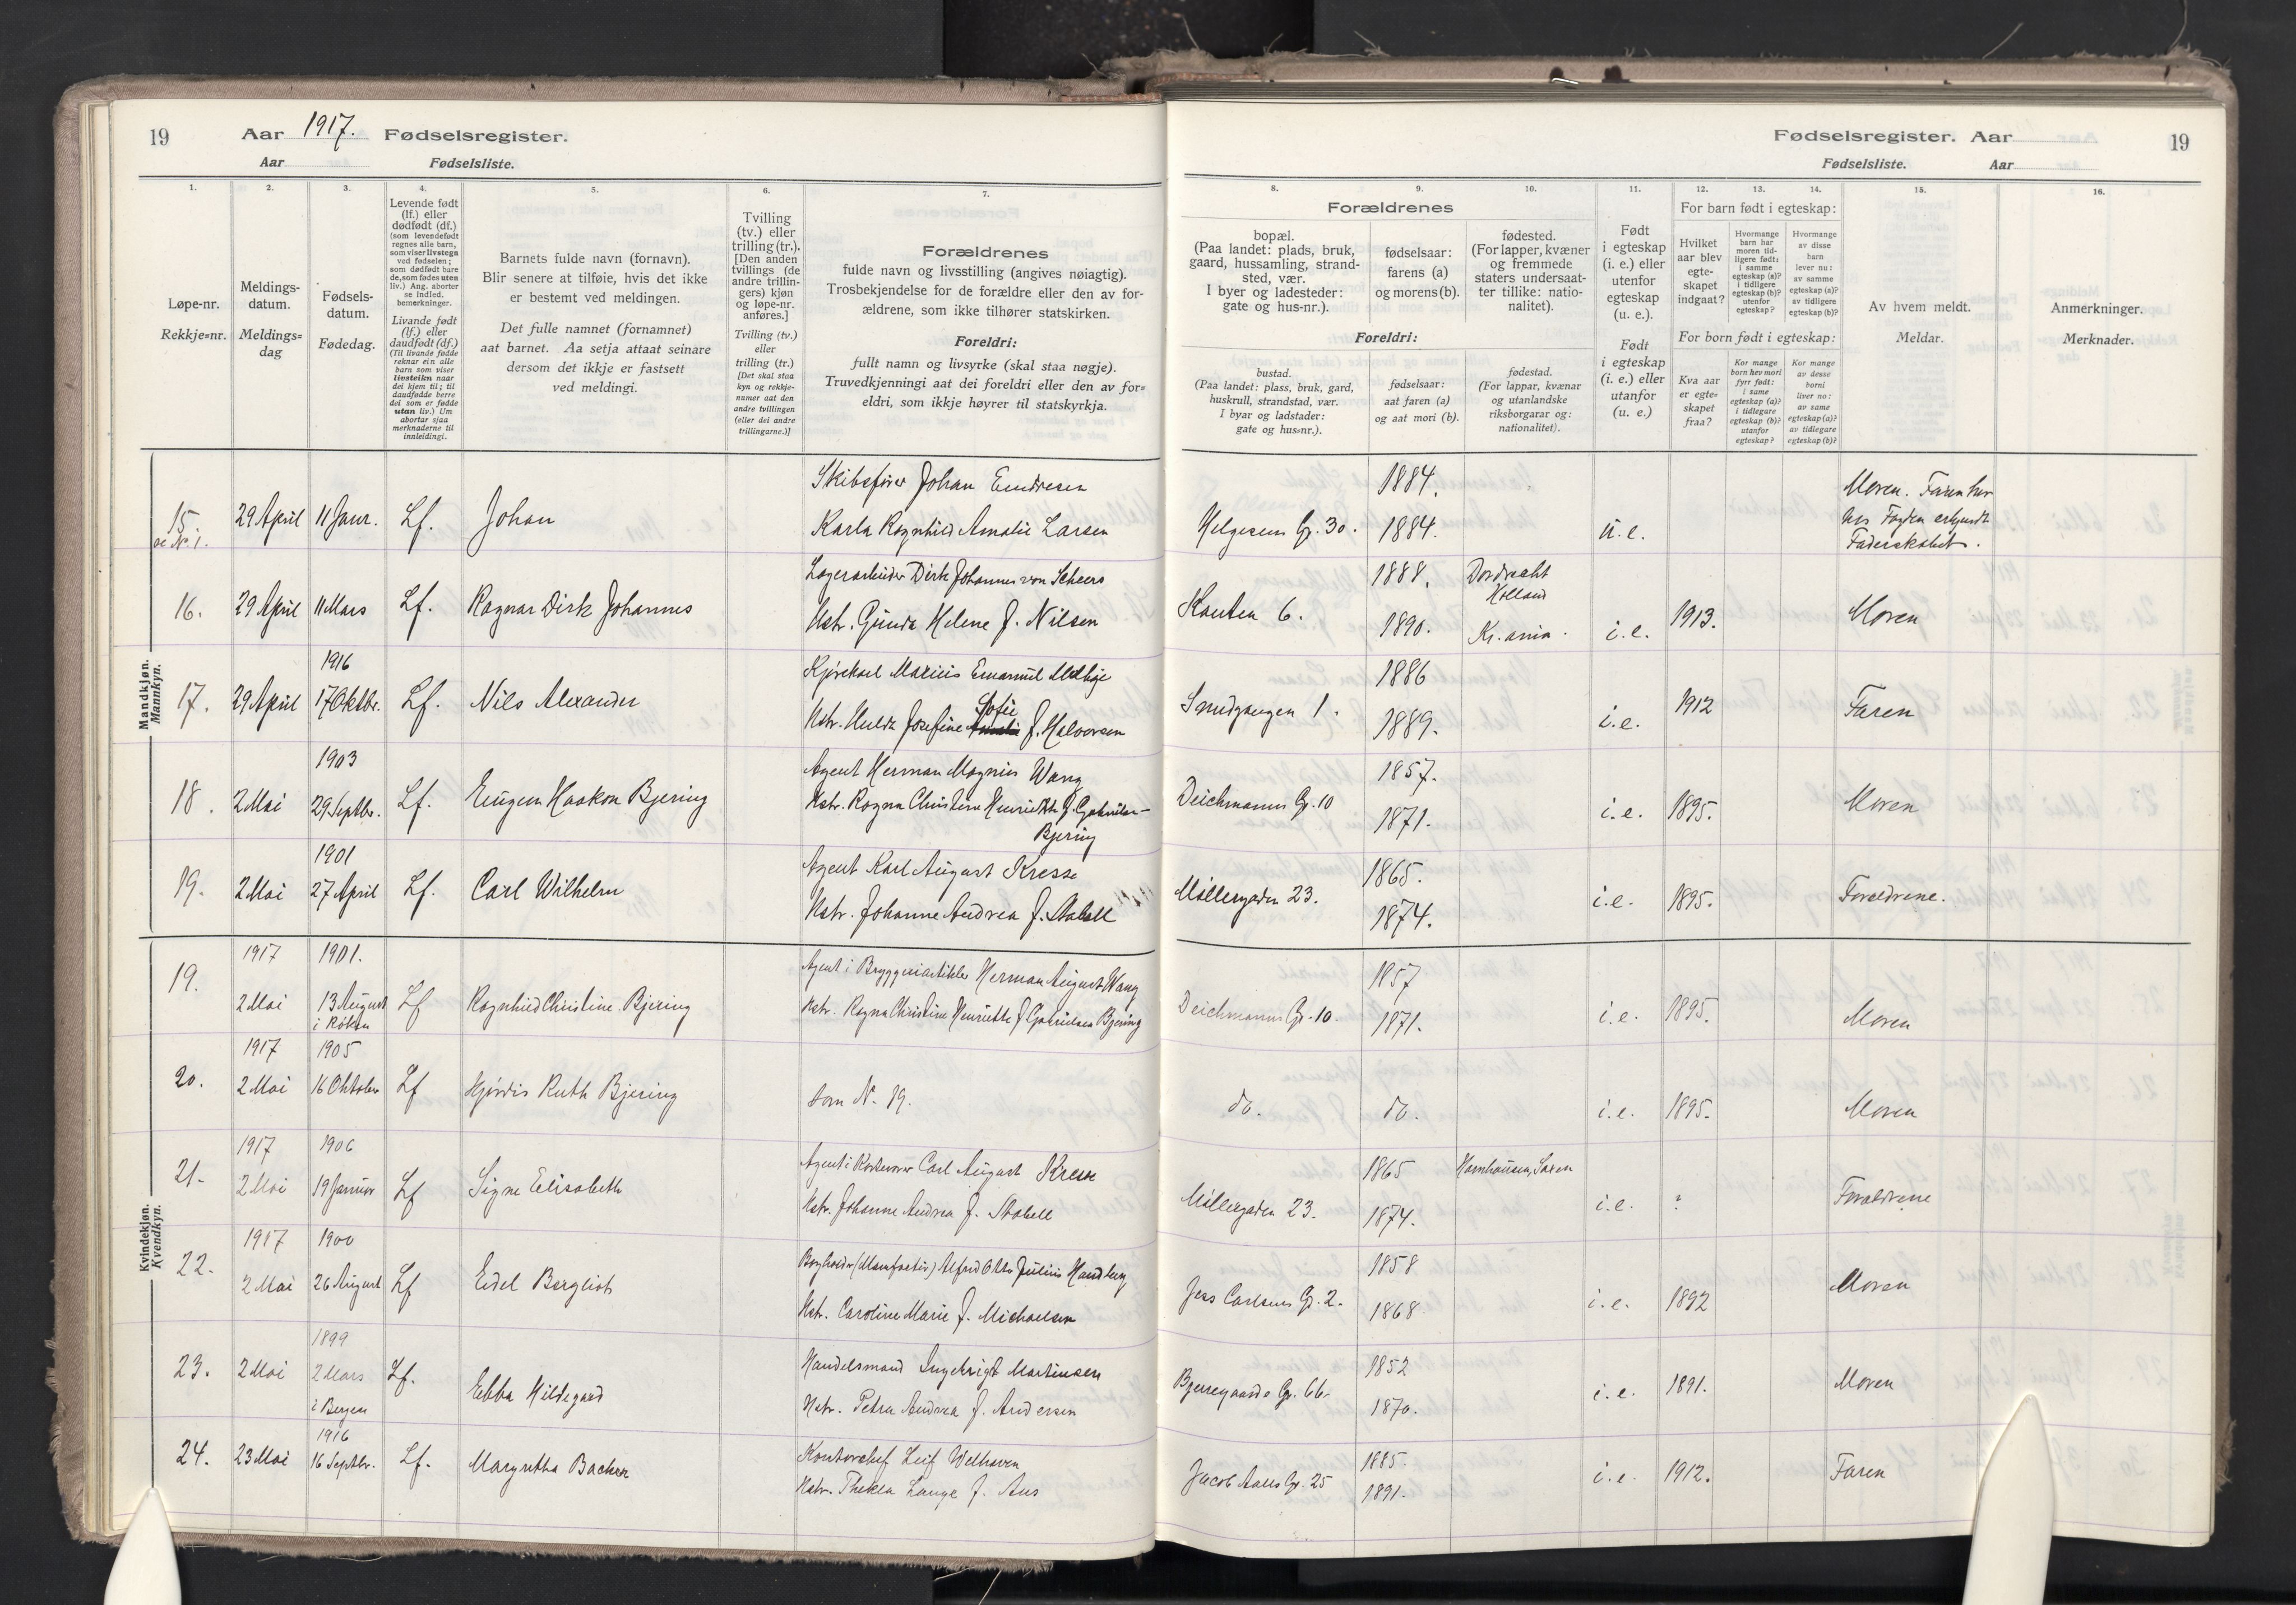 19 Aar 1917. Fødselsregister.
Aar Fødselsliste.
Fødselsregister. Aar 19
Fødselsliste. Aar
1. 2. 3. 4. 5. 6. 7.
Løpe-nr.
Rekkje=nr.
Meldings-
datum.
Meldings=
dag
Fødsels-
datum.
Fødedag.
Levende født
(lf.) eller
dødfødt (df.)
(som levendefødt
regnes alle barn,
som viser livstegn
ved fødselen;
som dødfødt bare
de, som fødes uten
liv.) Ang. aborter
se indled.
bemerkninger.
Livande født
(lf.) eller
daudfødt (df.)
(Til livande fødde
reknar ein alle
barn som viser
livsteikn naar
dei kjem til; til
daudfødde berre
dei som er fødde
utan liv.) Um
abortar sjaa
merknaderne til
innleidingi.
Barnets fulde navn (fornavn).
Blir senere at tilføie, hvis det ikke
er bestemt ved meldingen.
Det fulle namnet (fornamnet)
aat barnet. Aa setja attaat seinare
dersom det ikkje er fastsett
ved meldingi.
Tvilling
(tv.) eller
trilling (tr.).
[Den anden
tvillings (de
andre trillin-
gers) kjøn
og løpe-nr.
anføres.]
Tvilling (tv.)
eller
trilling (tr.)
[Det skal staa
kyn og rekkje-
numer aat den
andre tvillingen
(eller dei andre
trillingarne.)]
Forældrenes
fulde navn og livsstilling (angives nøiagtig).
Trosbekjendelse for de forældre eller den av for-
ældrene, som ikke tilhører statskirken.
Foreldri:
fullt namn og livsyrke (skal staa nøgje).
Truvedkjenningi aat dei foreldri eller den av for=
eldri, som ikkje høyrer til statskyrkja.
8. 9. 10. 11. 12. 13. 14. 15. 16.
Forældrenes
bopæl.
(Paa landet: plads, bruk,
gaard, hussamling, strand-
sted, vær.
I byer og ladesteder:
gate og hus-nr.).
fødselsaar:
farens (a)
og morens (b).
fødested.
(For lapper, kvæner
og fremmede
staters undersaat-
ter tillike: natio-
nalitet).
Foreldri:
bustad.
(Paa landet: plass, bruk, gard,
huskrull, strandstad, vær.
I byar og ladstader:
gate og hus=nr.).
fødselsaar:
aat faren (a)
og aat mori (b).
fødestad.
(For lappar, kvænar
og utanlandske
riksborgarar og:
nationalitet).
Født
i egteskap
(i. e.) eller
utenfor
egteskap
(u. e.).
Født
i egteskap
(i. e.) eller
utanfor
(u. e.)
For barn født i egteskap:
Hvilket
aar blev
egte-
skapet
indgaat?
Hvormange
barn har
moren tid-
ligere født:
i samme
egteskap (a)?
i tidligere
egteskap (b)?
utenfor
egteskap?
Hvormange
av disse
barn
lever nu:
av samme
egteskap (a)?
av tidligere
egteskap (b)?
For born født i egteskap:
Kva aar
er egte=
skapet
fraa?
Kor mange
born hev mori
fyrr født:
i same
egteskap (a)?
i tidlegare
egteskap (b)?
utanfor
egteskap?
Kor mange
av desse
borni
liver no:
av same
egteskap (a)?
av tidlegare
egteskap (b)?
Av hvem meldt.
Meldar.
Anmerkninger.
Merknader.
Mandkjøn.
Mannkyn.
15. 29 April 11 Janr. Lf. Johan Skibsfører Johan Endresen 1884. Moren.
Karla Ragnhild Amalie Larsen Helgesens G. 30. 1884. u. e.
Faderskabet.
16. 29 April 11 Mars Lf. Ragnar Dirk Johannes Lagerarbeider Dirk Johannes von Scheers 1888. Dordrecht
Holland
Hstr. Gunda Helene f. Nilsen Kanten 6. 1890. Kr.ania. i. e. 1913. Moren
1916
17. 29 April 17 Oktbr. Lf. Nils Alexander Emanuel 1886
Sofie
Hstr. Hulda Josefine f. Halvorsen Smedgangen 1. 1889. i. e. 1912 Faren
1903
18. 2 Mai 29 Septbr. Lf. Eugen Haakon Bjering Agent Herman Magnus Wang 1857.
Hstr. Ragna Christine Henriette f. Gabrielsen-
Bjering
Deichmanns G. 10 1871. i. e. 1895. Moren
1901
19. 2 Mai 27 April Lf. Carl Wilhelm Agent Karl August Kresse 1865.
Hstr. Johanne Andrea f. Stabell Møllergaden 23. 1874. i. e. 1895. Forældrene.
Kvindekjøn.
Kvendkyn.
1917 1901.
19. 2 Mai 13 August Lf Ragnhild Christine Bjering Agent i Bryggeriartikler Herman August Wang 1857
i Røken
Hstr. Ragna Christine Henriette f Gabrielsen Bjering Deichmanns G. 10. 1871. i. e. 1895. Moren
1917 1905
20. 2 Mai 16 Oktober Lf Hjørdis Ruth Bjering som N. 19. do. do. i. e. 1895. Moren
1917 1906
21. 2 Mai 19 Januar Lf Signe Elisabeth Agent Carl August Kresse 1865
Hstr. Johanne Andrea f. Stabell Møllergaden 23. 1874. i. e. ? Forældrene
1917 1900
22. 2 Mai 26 August Lf Edel Bergliot Bogholder (Manufactur) Alfred Otto Julius Handberg 1858
Hstr. Caroline Marie f. Michaelsen Jess Carlsens G. 2. 1868. i. e. 1892 Moren
1899
23. 2 Mai 2 Mars Lf. Ebba Hildegard Handelsmand Ingebrigt Martinsen 1852
i Bergen
Hstr. Petra Andrea f. Andersen Bjerregaards G. 66. 1870. i. e. 1891. Moren
1916
24. 23 Mai 16 Septbr. Lf. Margretha Backer Kontorchef Leif Welhaven 1885.
Hstr. Thekla Lange f. Aus Jacob Aalls G. 25 1891. i. e. 1912. Faren